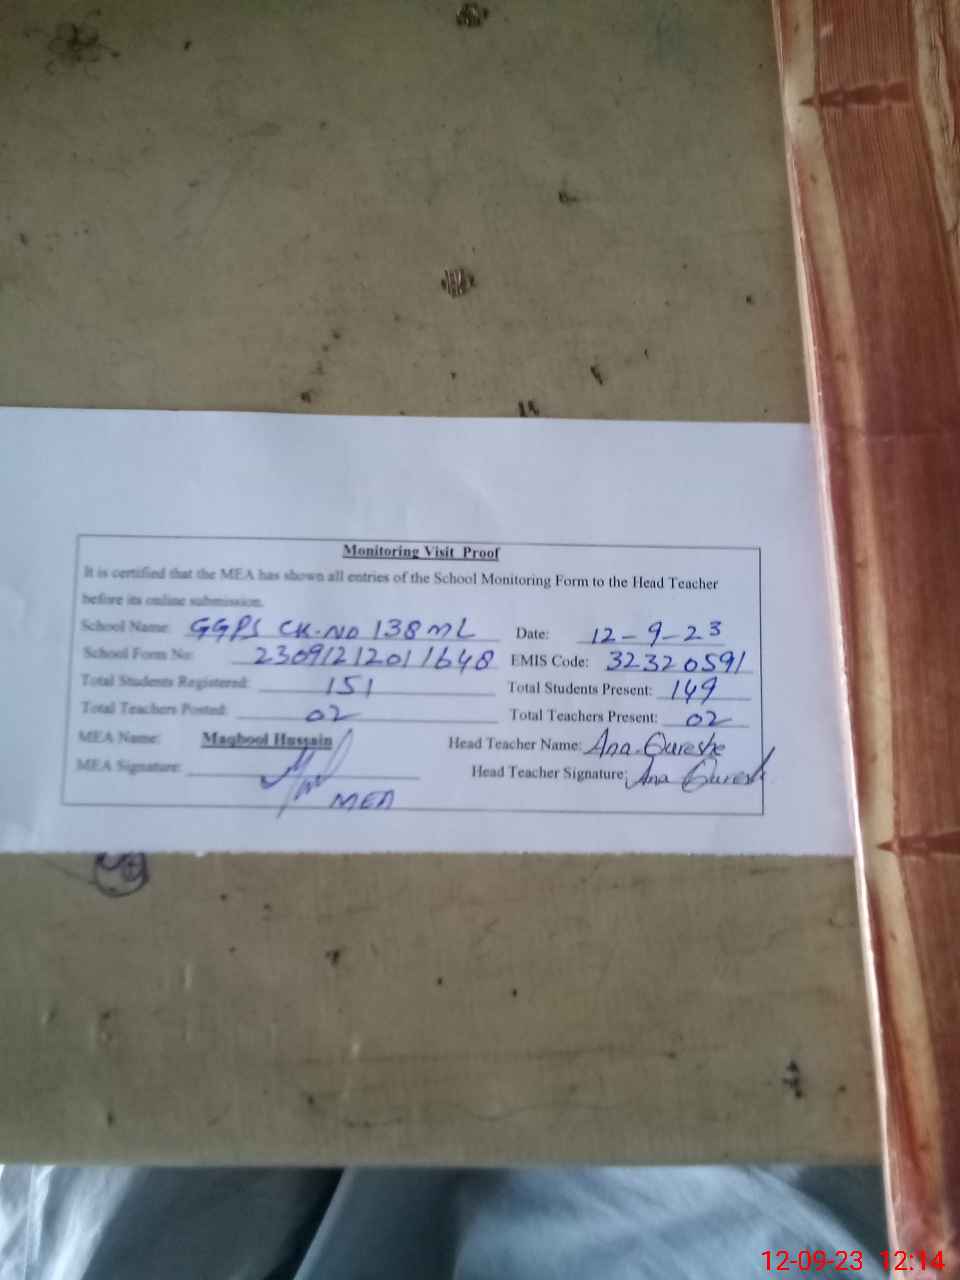 Monitoring Visit Proof
It is certified that the MEA has shown all entries of the School Monitoring Form to the Head Teacher
before its online submission.
School Name: GGPS CK.NO 138 ML Date: 12-9-23
School Form No: 2309121201648 EMIS Code: 32320591
Total Students Registered: 151 Total Students Present: 149
Total Teachers Posted: 02 Total Teachers Present: 02
MEA Name: Maqbool Hussain Head Teacher Name: Ana Qureshe
MEA Signature: Head Teacher Signature: Ana Quresh
MEA
12-09-23 12:14